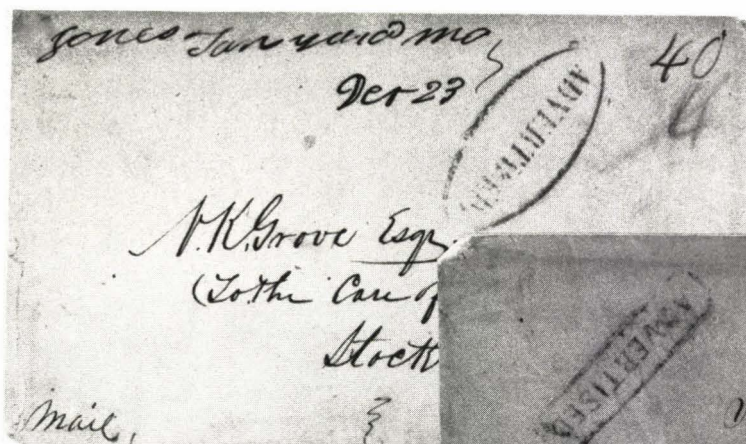 Jones Tanyard Mo
Dec 23
ADVERTISED
40
N.K. Grove Esqr.
(To the Care of
Stock
ADVERTISED
Mail,